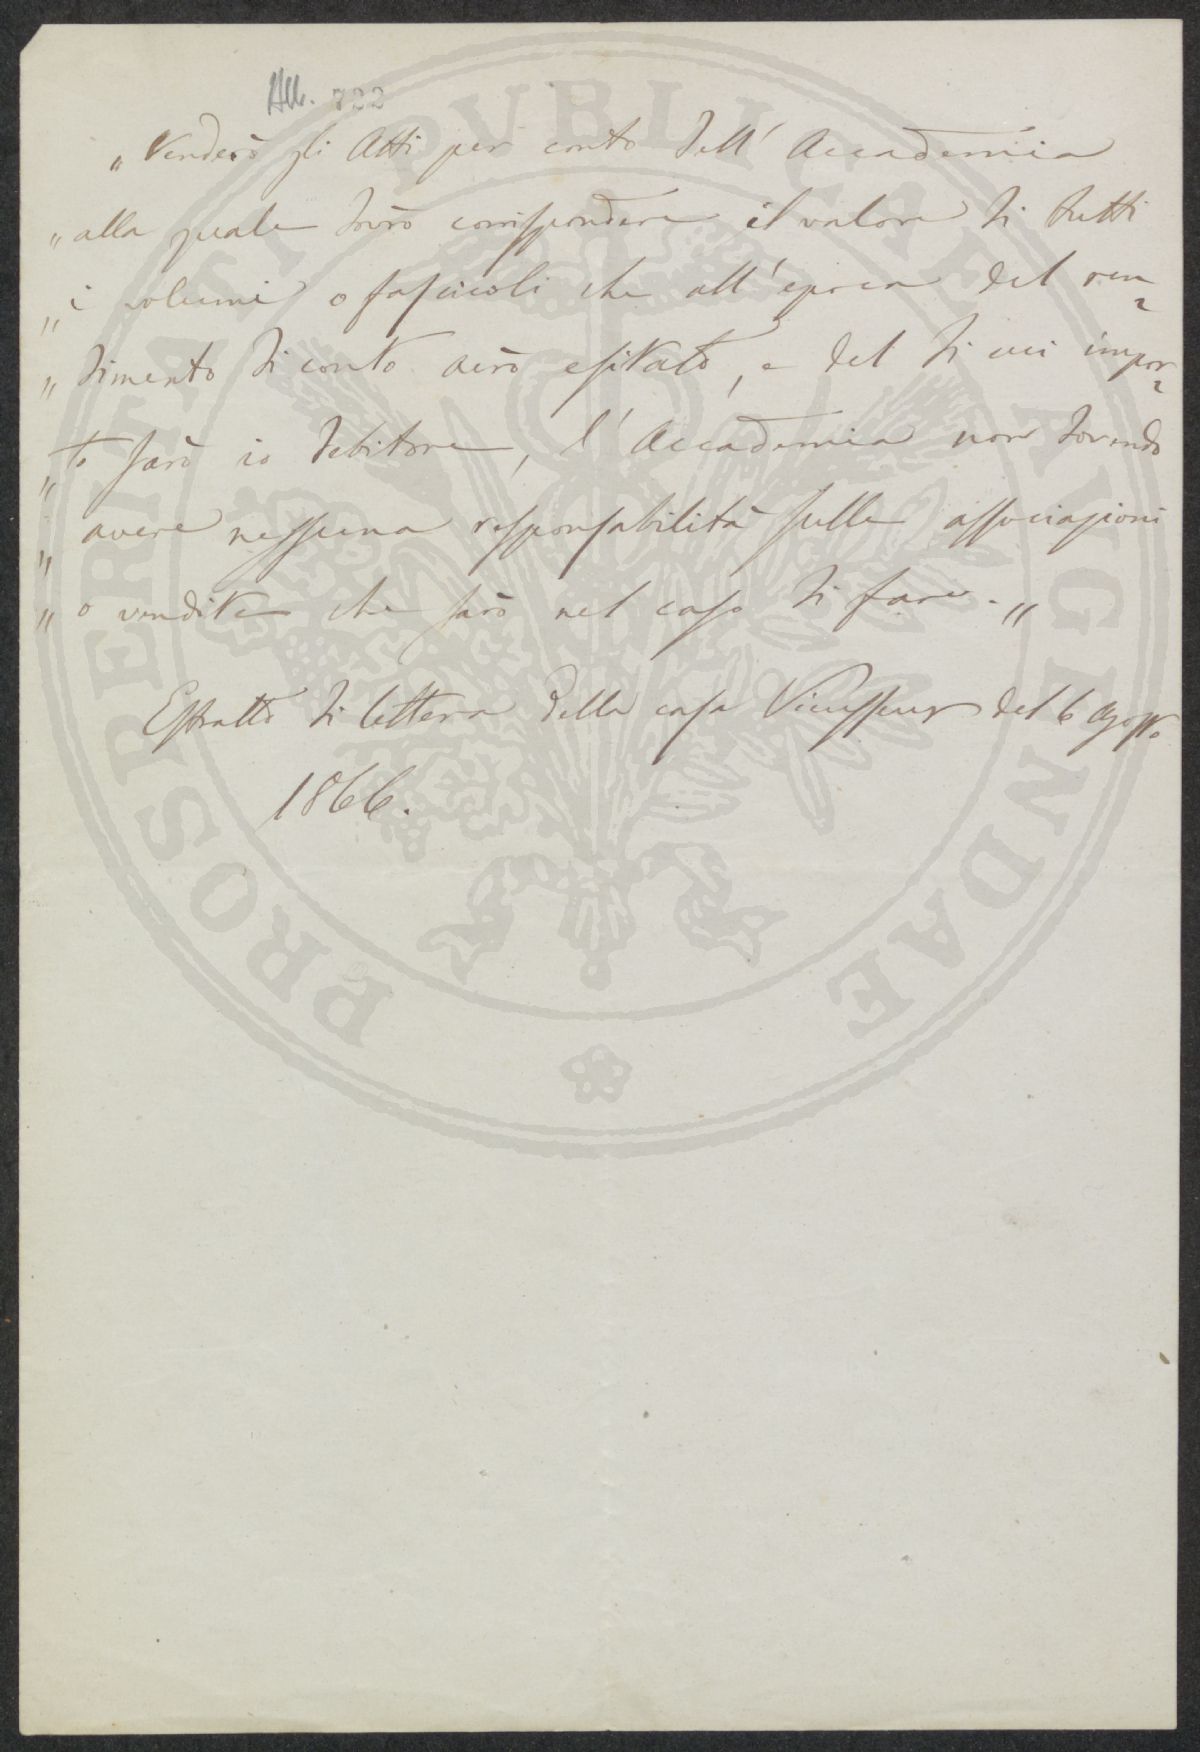 All. 722
„ Venderò gli Atti per conto dell' Accademia
„ alla quale dovrò corrispondere il valore di tutti
„ i volumi o fascicoli che all' epoca del ren=
„ dimento di conto avrò esitato, e del di cui impor=
„ to sarò io debitore, l' Accademia non dovendo
„ avere nessuna responsabilità sulle associazioni
„ o vendite che sarò nel caso di fare. „
Estratto di lettera della casa Vieusseux del 6 Agosto
1866.
PROSPERITATI PVBLICAE AVGENDAE